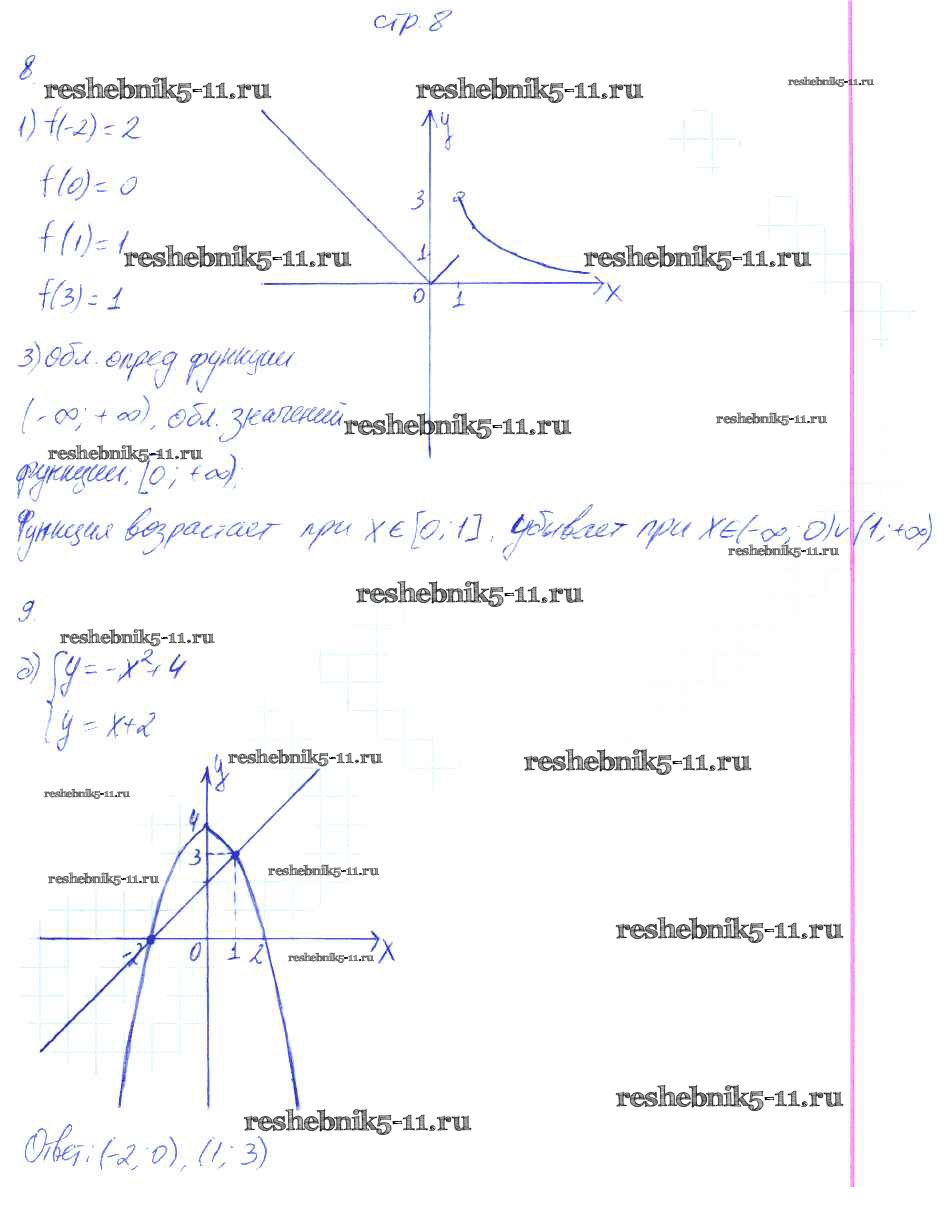 стр. 8
8
reshebnik5-11.ru reshebnik5-11.ru reshebnik5-11.ru
1) f(-2) = 2
f(0) = 0
f(1) = 1
f(3) = 1
reshebnik5-11.ru reshebnik5-11.ru
y
3
1
0 1 x
3) Обл. опред функции
(-∞; +∞), обл. значений
reshebnik5-11.ru reshebnik5-11.ru
reshebnik5-11.ru
функции: [0; +∞);
Функция возрастает при x ∈ [0; 1], убывает при x ∈ (-∞; 0) ∪ (1; +∞)
reshebnik5-11.ru
reshebnik5-11.ru
9.
reshebnik5-11.ru
д) { y = -x² + 4
y = x+2
reshebnik5-11.ru reshebnik5-11.ru
reshebnik5-11.ru
y
4
3
reshebnik5-11.ru reshebnik5-11.ru
reshebnik5-11.ru
-2 0 1 2 x
reshebnik5-11.ru
reshebnik5-11.ru
reshebnik5-11.ru
Ответ: (-2; 0), (1; 3)